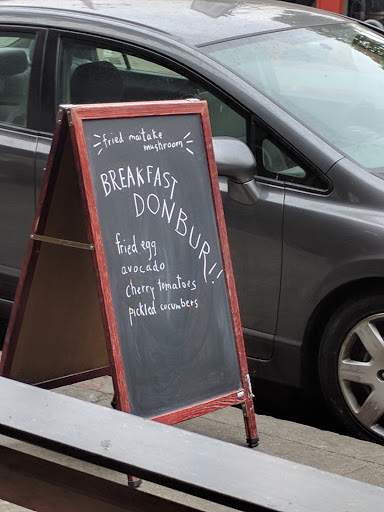 fried maitake
mushroom
BREAKFAST
DONBURI!!
fried egg
avocado
cherry tomatoes
pickled cucumbers